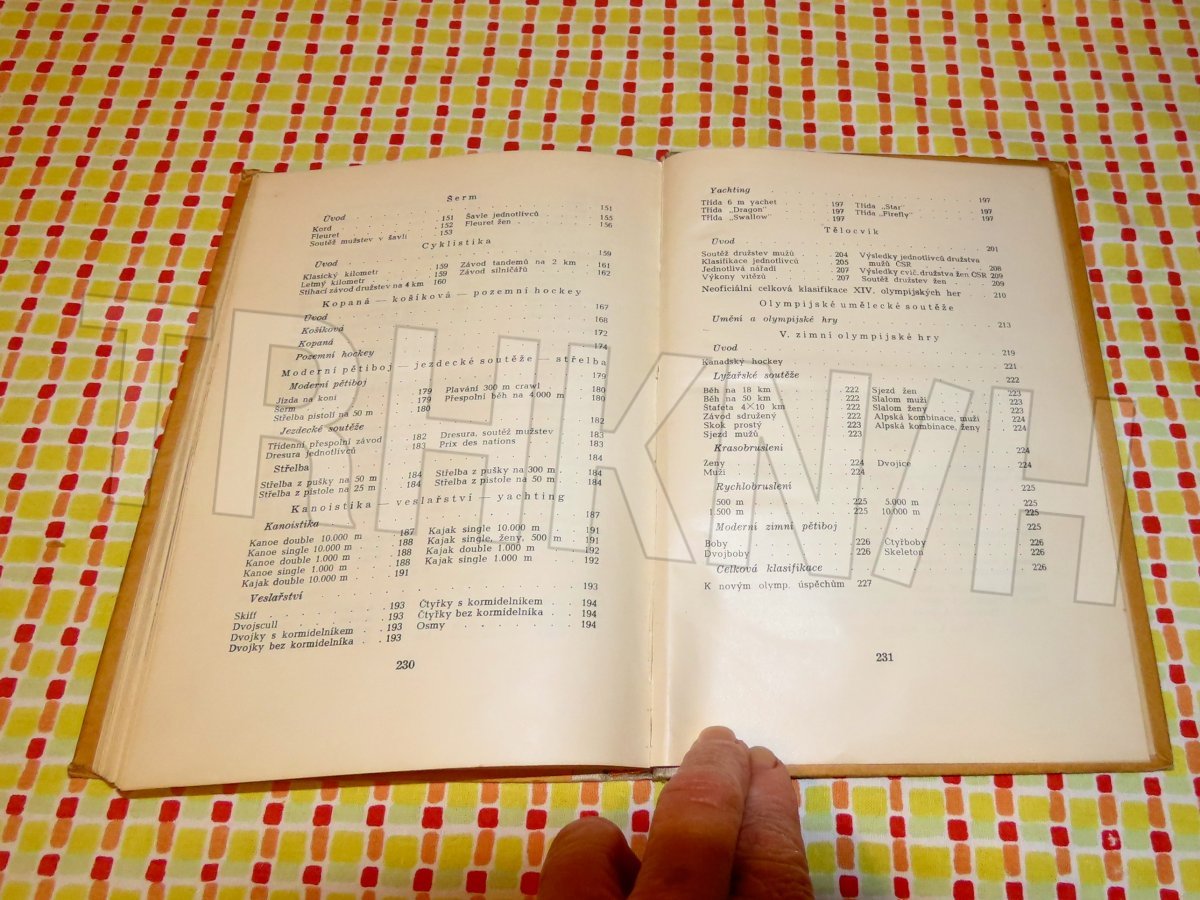 Šerm
Úvod . . . . . . . . . . . . 151
Kord . . . . . . . . 151 Šavle jednotlivců . . . . 155
Fleuret . . . . . . . 152 Fleuret žen . . . . . . 156
Soutěž mužstev v šavli 153
Cyklistika
Úvod . . . . . . . . . . . . 159
Klasický kilometr . . 159 Závod tandemů na 2 km . 161
Letmý kilometr . . . 159 Závod silničářů . . . . 162
Stíhací závod družstev na 4 km 160
Kopaná — košíková — pozemní hockey
Úvod . . . . . . . . . . . . 167
Košíková . . . . . . . . . . 168
Kopaná . . . . . . . . . . . 172
Pozemní hockey . . . . . . . 174
Moderní pětiboj — jezdecké soutěže — střelba
Moderní pětiboj . . . . . . . 179
Jízda na koni . . . . 179 Plavání 300 m crawl . . 180
Šerm . . . . . . . . 179 Přespolní běh na 4.000 m . 180
Střelba pistolí na 50 m . 180
Jezdecké soutěže . . . . . . . 182
Třídenní přespolní závod . 182 Dresura, soutěž mužstev . 183
Dresura jednotlivců . . . 183 Prix des nations . . . . 183
Střelba . . . . . . . . . . . 184
Střelba z pušky na 50 m . 184 Střelba z pušky na 300 m . 184
Střelba z pistole na 25 m . 184 Střelba z pistole na 50 m . 184
Kanoistika — veslařství — yachting
Kanoistika . . . . . . . . . . 187
Kanoe double 10.000 m . . 187 Kajak single 10.000 m . . 191
Kanoe single 10.000 m . . 188 Kajak single, ženy, 500 m . 191
Kanoe double 1.000 m . . 188 Kajak double 1.000 m . . 192
Kanoe single 1.000 m . . 188 Kajak single 1.000 m . . 192
Kajak double 10.000 m . . 191
Veslařství . . . . . . . . . . 193
Skiff . . . . . . . . 193 Čtyřky s kormidelníkem . 194
Dvojscull . . . . . . 193 Čtyřky bez kormidelníka . 194
Dvojky s kormidelníkem . . 193 Osmy . . . . . . . 194
Dvojky bez kormidelníka . . 193
230
Yachting . . . . . . . . . . . 197
Třída 6 m yachet . . . 197 Třída „Star" . . . . . 197
Třída „Dragon" . . . . 197 Třída „Firefly" . . . . 197
Třída „Swallow" . . . . 197
Tělocvik
Úvod . . . . . . . . . . . . 201
Soutěž družstev mužů . . 204 Výsledky jednotlivců družstva
Klasifikace jednotlivců . . 205 mužů ČSR . . . . . 208
Jednotlivá nářadí . . . . 207 Výsledky cvič. družstva žen ČSR 209
Výkony vítězů . . . . . 207 Soutěž družstev žen . . . 209
Neoficiální celková klasifikace XIV. olympijských her . 210
Olympijské umělecké soutěže
Umění a olympijské hry . . . . . 213
V. zimní olympijské hry
Úvod . . . . . . . . . . . . 219
Kanadský hockey . . . . . . . 221
Lyžařské soutěže . . . . . . . 222
Běh na 18 km . . . . 222 Sjezd žen . . . . . . 223
Běh na 50 km . . . . 222 Slalom muži . . . . . 223
Štafeta 4×10 km . . . 222 Slalom ženy . . . . . 223
Závod sdružený . . . . 222 Alpská kombinace, muži . 224
Skok prostý . . . . . 223 Alpská kombinace, ženy . 224
Sjezd mužů . . . . . 223
Krasobruslení . . . . . . . . 224
Ženy . . . . . . . . 224 Dvojice . . . . . . 224
Muži . . . . . . . . 224
Rychlobruslení . . . . . . . . 225
500 m . . . . . . . 225 5.000 m . . . . . . 225
1.500 m . . . . . . 225 10.000 m . . . . . . 225
Moderní zimní pětiboj . . . . . 225
Boby . . . . . . . . 226 Čtyřboby . . . . . . 226
Dvojboby . . . . . . 226 Skeleton . . . . . . 226
Celková klasifikace . . . . . . 226
K novým olymp. úspěchům 227
231
TRHKNIH